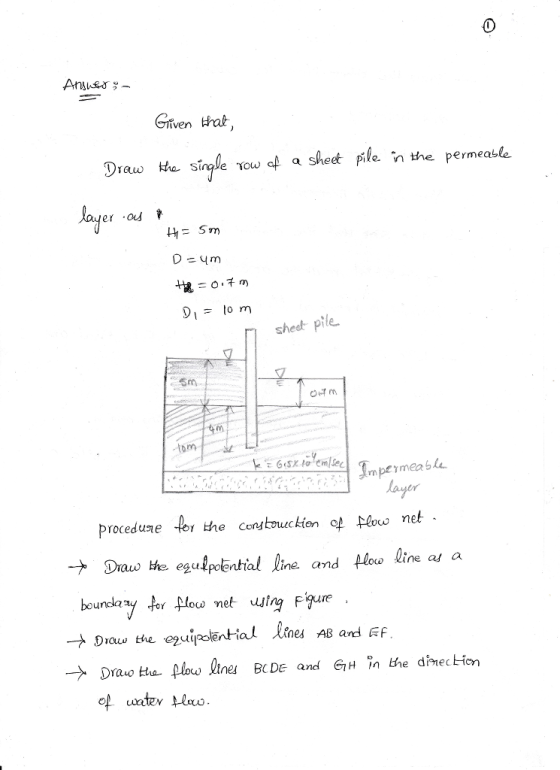 ①
Answer :-
Given that,
Draw the single row of a sheet pile in the permeable
layer as
H₁ = 5m
D = 4m
H₂ = 0.7 m
D₁ = 10 m
sheet pile
5m
0.7m
4m
10m
k = 6.5 x 10⁻⁴ cm/sec
Impermeable
layer
procedure for the construction of flow net.
→ Draw the equipotential line and flow line as a
boundary for flow net using Figure.
→ Draw the equipotential lines AB and EF.
→ Draw the flow lines BCDE and GH in the direction
of water flow.